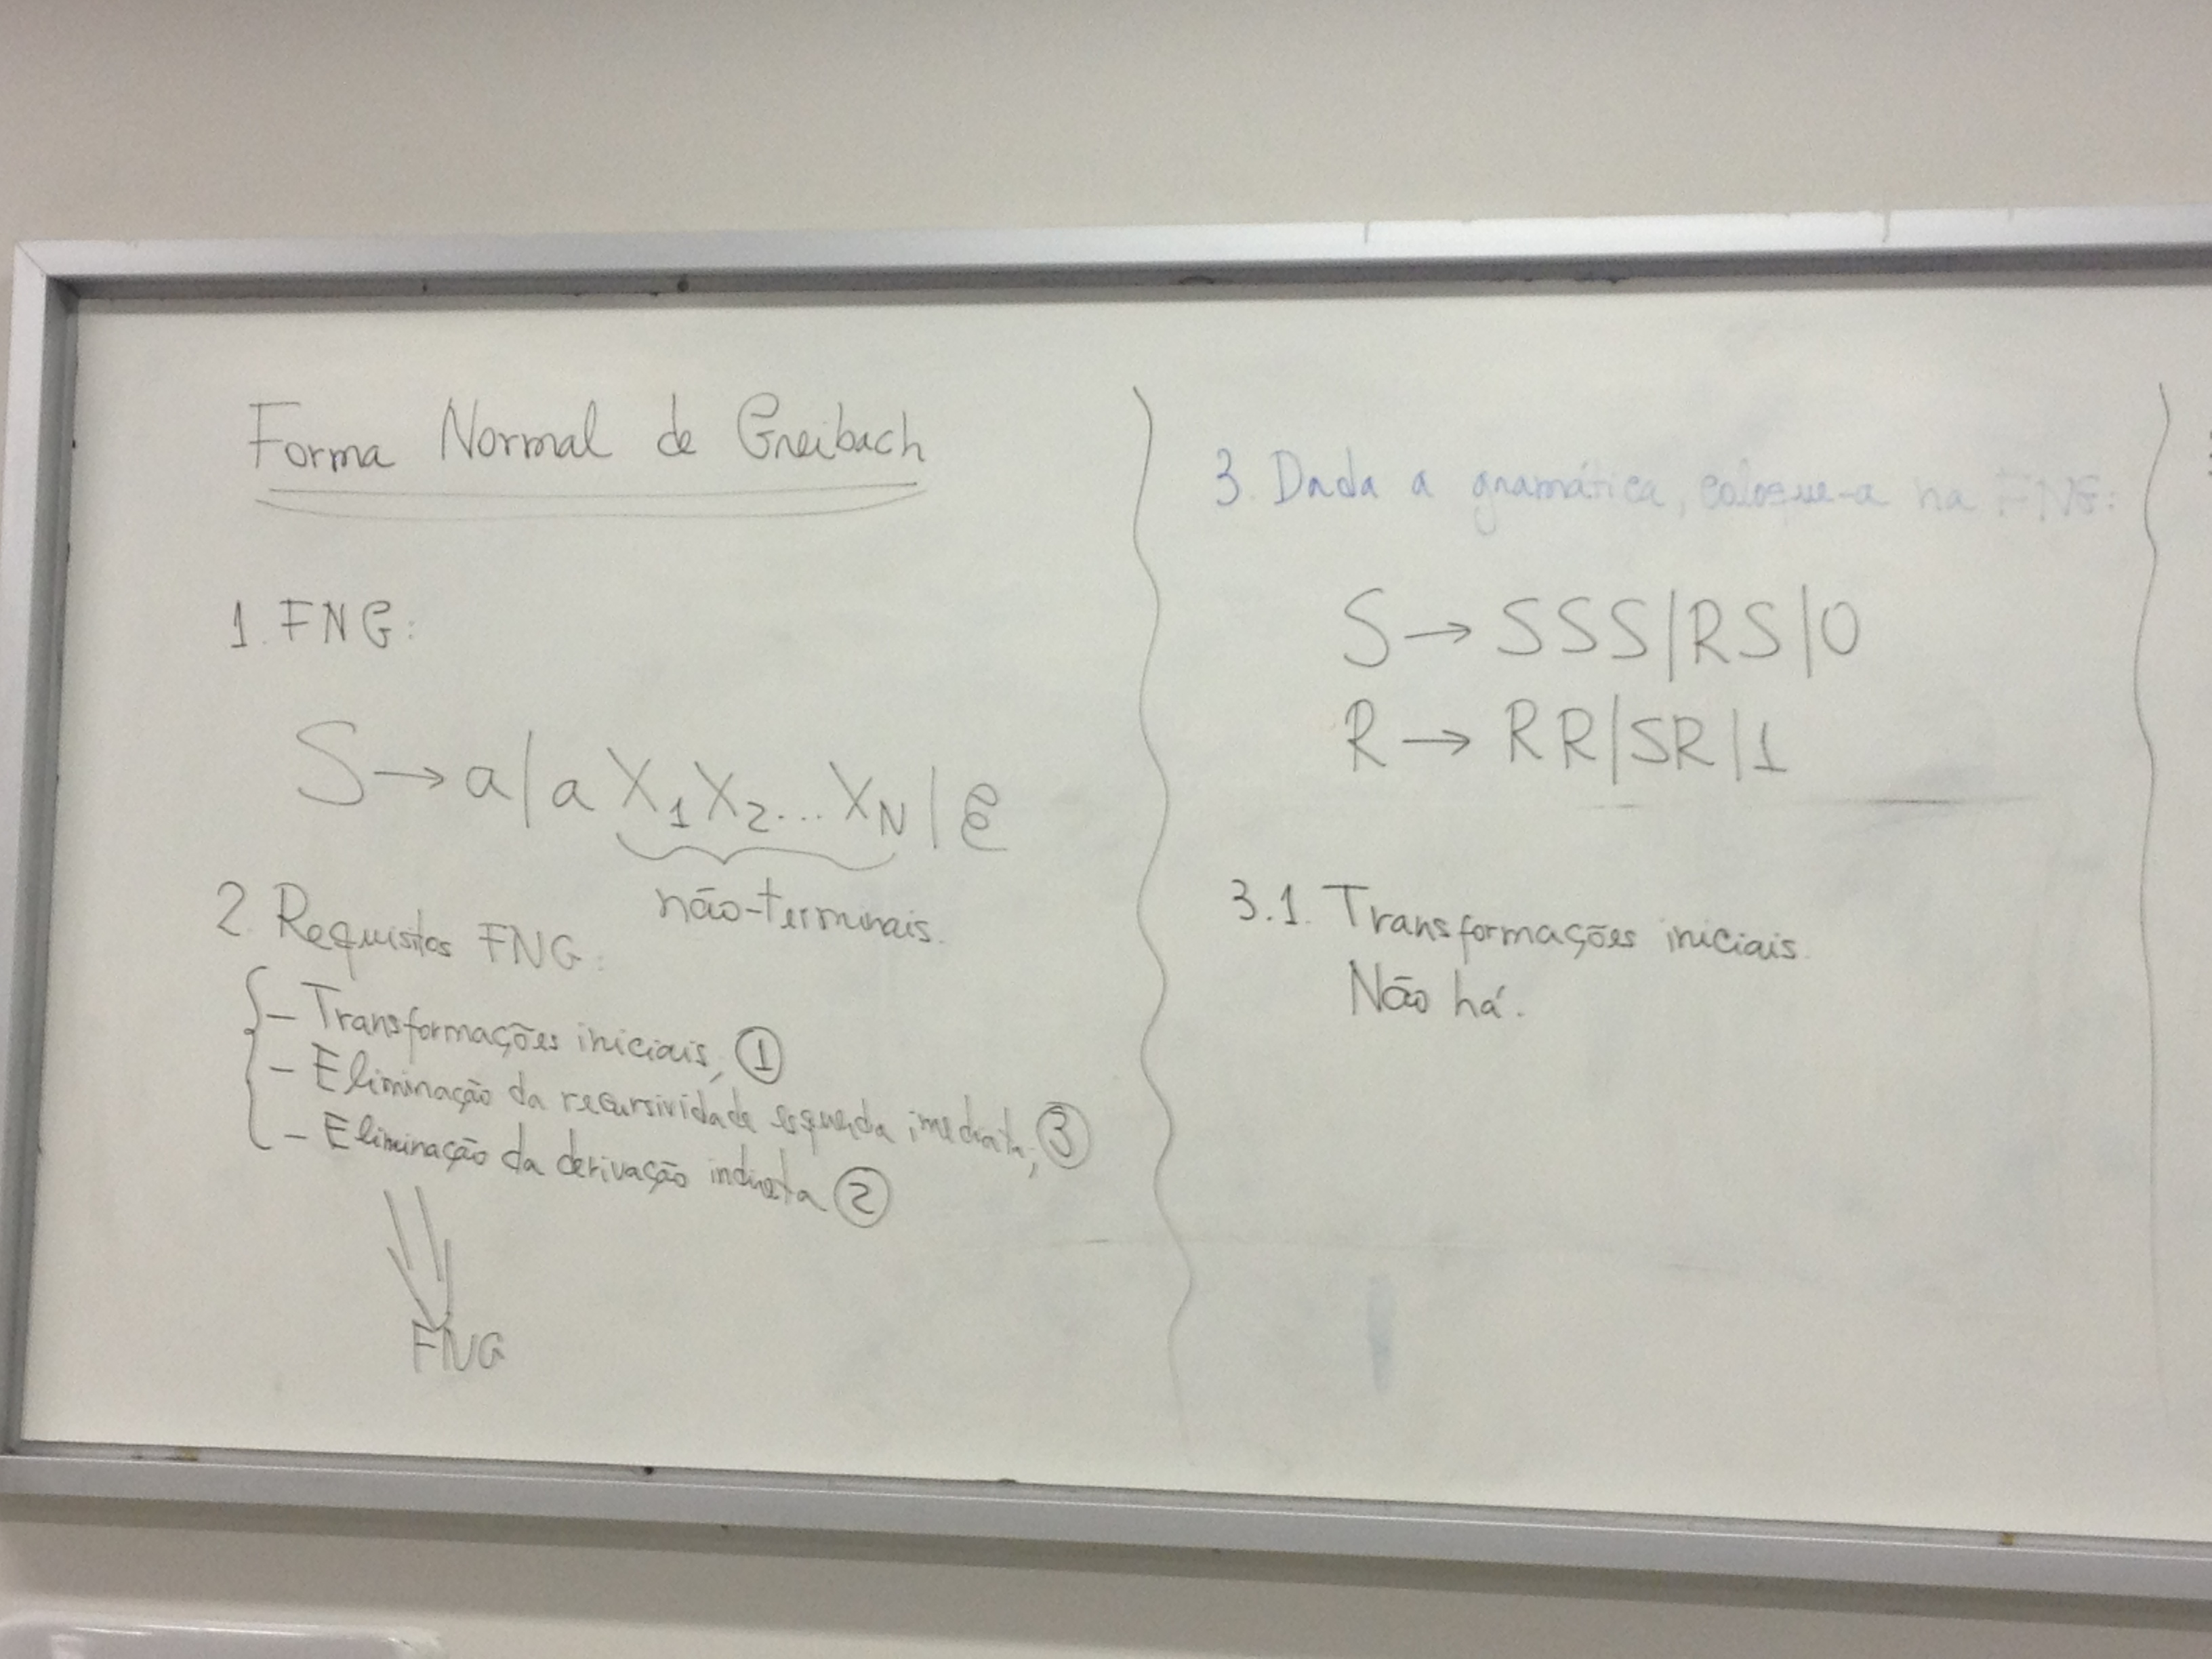 Forma Normal de Greibach
1. FNG:
S → a | a X₁ X₂ ... X_N | ε
não-terminais.
2. Requisitos FNG:
- Transformações iniciais, ①
- Eliminação da recursividade esquerda imediata; ③
- Eliminação da derivação indireta ②
FNG
3. Dada a gramática, coloque-a na FNG:
S → SSS | RS | 0
R → RR | SR | 1
3.1. Transformações iniciais.
Não há.